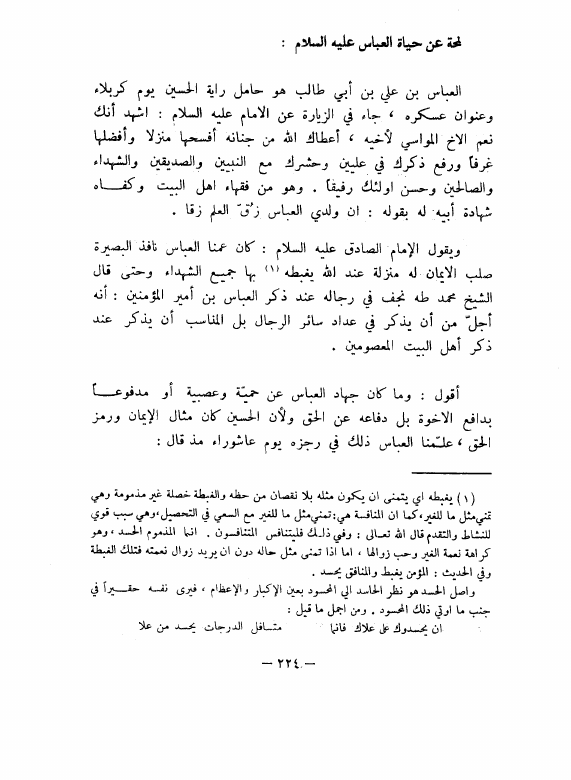 لمحة عن حياة العباس عليه السلام :
العباس بن علي بن أبي طالب هو حامل راية الحسين يوم كربلاء
وعنوان عسكره ، جاء في الزيارة عن الامام عليه السلام : اشهد أنك
نعم الاخ المواسي لأخيه ، أعطاك الله من جنانه أفسحها منزلا وأفضلها
غرفاً ورفع ذكرك في عليين وحشرك مع النبيين والصديقين والشهداء
والصالحين وحسن اولئك رفيقاً . وهو من فقهاء اهل البيت وكفـــاه
شهادة أبيه له بقوله : ان ولدي العباس زُقّ العلم زقا .
ويقول الإمام الصادق عليه السلام : كان عمنا العباس نافذ البصيرة
صلب الايمان له منزلة عند الله يغبطه (١) بها جميع الشهداء وحتى قال
الشيخ محمد طه نجف في رجاله عند ذكر العباس بن أمير المؤمنين : أنه
أجلّ من أن يذكر في عداد سائر الرجال بل المناسب أن يذكر عند
ذكر أهل البيت المعصومين .
أقول : وما كان جهاد العباس عن حميّة وعصبية أو مدفوعـــاً
بدافع الاخوة بل دفاعه عن الحق ولأن الحسين كان مثال الإيمان ورمز
الحق ، علـّمنا العباس ذلك في رجزه يوم عاشوراء مذ قال :
(١) يغبطه اي يتمنى ان يكون مثله بلا نقصان من حظه والغبطة خصلة غير مذمومة وهي
تمني مثل ما للغير، كما ان المنافسة هي: تمني مثل ما للغير مع السعي في التحصيل، وهي سبب قوي
للنشاط والتقدم قال الله تعـالى : وفي ذلـك فليتنافس المتنافسون . انما المذموم الحسد ، وهو
كراهة نعمة الغير وحب زوالها ، اما اذا تمنى مثل حاله دون ان يريد زوال نعمته فتلك الغبطة
وفي الحديث : المؤمن يغبط والمنافق يحسد .
واصل الحسد هو نظر الحاسد الى المحسود بعين الإكبار والإعظام ، فيرى نفسه حقـيراً في
جنب ما اوتي ذلك المحسود . ومن اجمل ما قيل :
ان يحسدوك على علاك فانما متسافل الدرجات يحسد من علا
— ٢٢٤ —